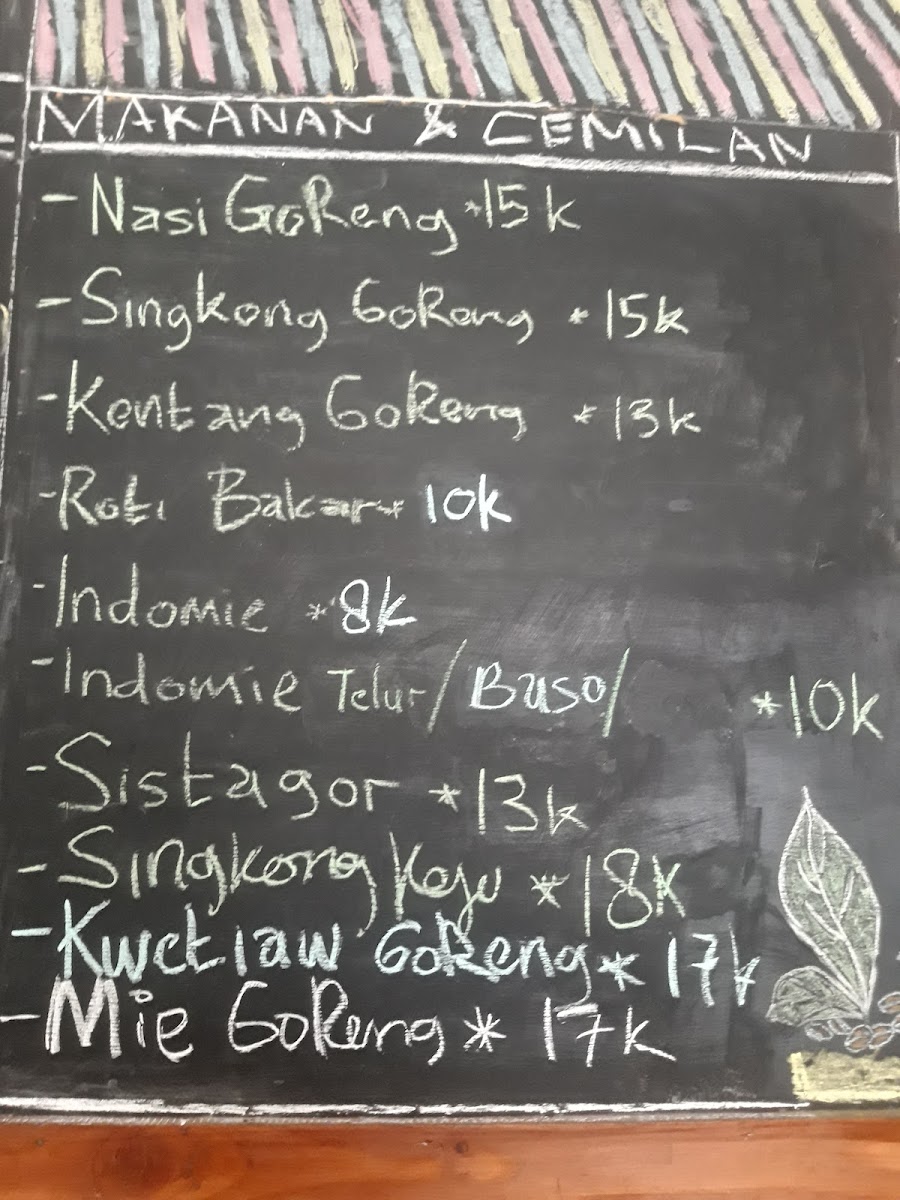 MAKANAN & CEMILAN
- Nasi GoReng *15k
- Singkong GoReng *15k
- Kentang GoReng *13k
- Roti Bakar * 10k
- Indomie *8k
- Indomie Telur/Baso/ *10k
- Sistagor *13k
- Singkong Keju *18K
- Kwetiaw GoReng* 17k
- Mie GoReng* 17k